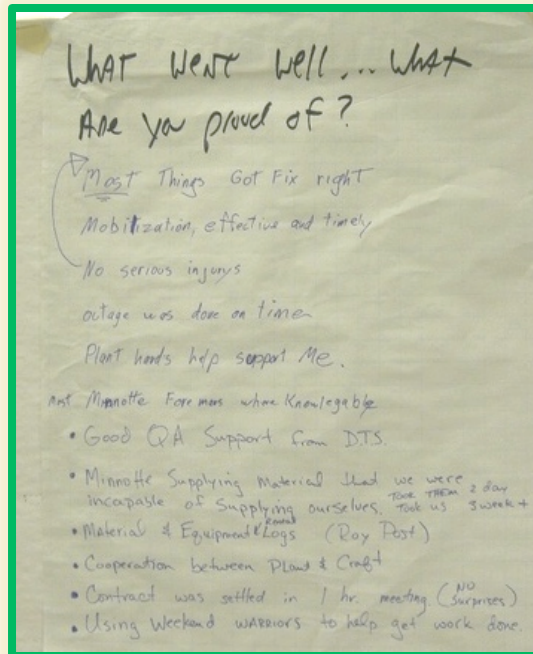 What went well... what
Are you proud of?
Most Things Got Fix right
Mobilization, effective and timely
No serious injurys
outage was done on time
Plant hands help support Me.
most Minnotte Foremans whare Knowlegable
• Good QA Support from D.T.S.
• Minnotte Supplying Material that we were
incapable of Supplying ourselves. Took THEM 2 day
Took us 3 week +
• Material & Equipment Rental Logs (Roy Post)
• Cooperation between Plant & Craft
• Contract was settled in 1 hr. meeting. (NO Surprises)
• Using Weekend WARRIORS to help get work done.